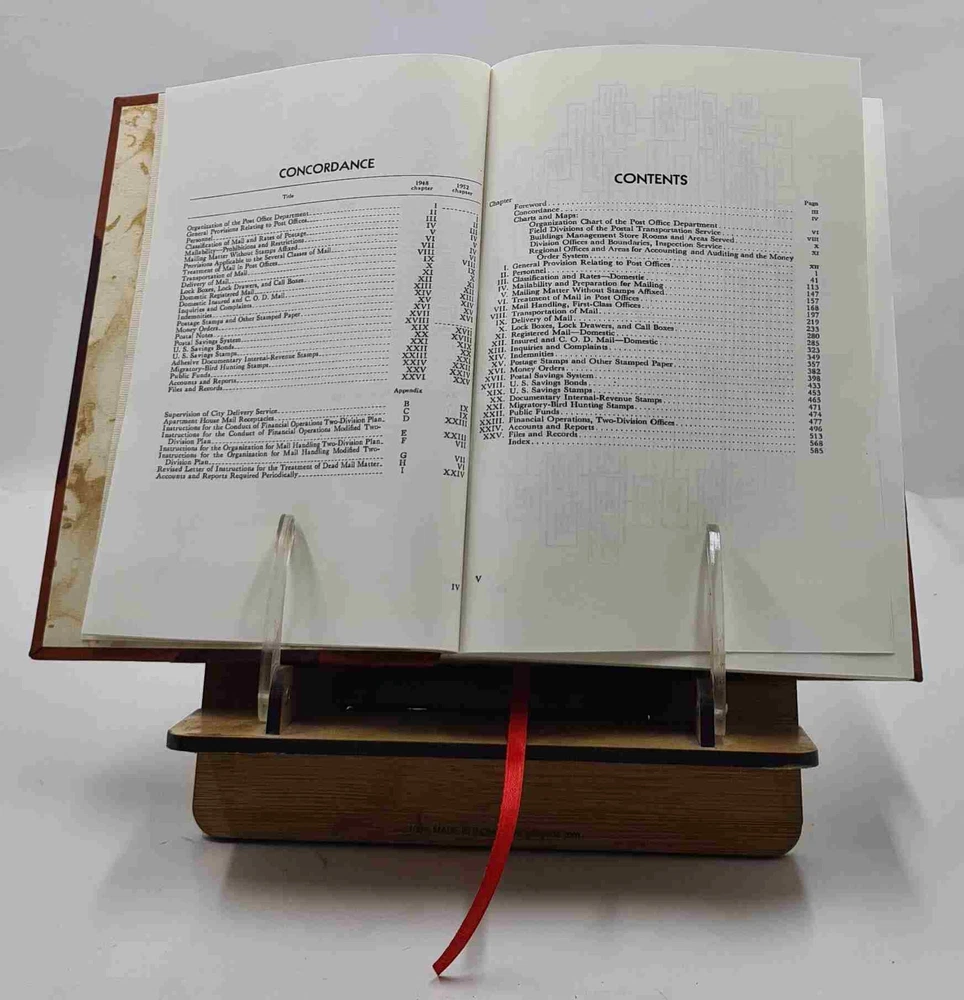 CONCORDANCE
Title 1948 chapter 1952 chapter
Organization of the Post Office Department I
General Provisions Relating to Post Offices II I
Personnel III II
Classification of Mail and Rates of Postage IV III
Mailability—Prohibitions and Restrictions V IV
Mailing Matter Without Stamps Affixed VI V
Provisions Applicable to the Several Classes of Mail VII
Treatment of Mail in Post Offices VIII VI
Transportation of Mail IX VIII
Delivery of Mail X IX
Lock Boxes, Lock Drawers, and Call Boxes XI X
Domestic Registered Mail XII XI
Domestic Insured and C. O. D. Mail XIII XII
Inquiries and Complaints XIV XIII
Indemnities XV XIV
Postage Stamps and Other Stamped Paper XVI XV
Money Orders XVII XVI
Postal Notes XVIII
Postal Savings System XIX XVII
U. S. Savings Bonds XX XVIII
U. S. Savings Stamps XXI XIX
Adhesive Documentary Internal-Revenue Stamps XXII XX
Migratory-Bird Hunting Stamps XXIII XXI
Public Funds XXIV XXII
Accounts and Reports XXV XXIV
Files and Records XXVI XXV
Appendix
Supervision of City Delivery Service B IX
Apartment House Mail Receptacles C IX
Instructions for the Conduct of Financial Operations Two-Division Plan D XXIII
Instructions for the Conduct of Financial Operations Modified Two-
Division Plan E XXIII
Instructions for the Organization for Mail Handling Two-Division Plan F VII
Instructions for the Organization for Mail Handling Modified Two-
Division Plan G VII
Revised Letter of Instructions for the Treatment of Dead Mail Matter H VI
Accounts and Reports Required Periodically I XXIV
IV
CONTENTS
Chapter Page
Foreword III
Concordance IV
Charts and Maps:
Organization Chart of the Post Office Department VI
Field Divisions of the Postal Transportation Service VIII
Buildings Management Store Rooms and Areas Served X
Division Offices and Boundaries, Inspection Service XI
Regional Offices and Areas for Accounting and Auditing and the Money
Order System XII
I. General Provision Relating to Post Offices 1
II. Personnel 41
III. Classification and Rates—Domestic 113
IV. Mailability and Preparation for Mailing 147
V. Mailing Matter Without Stamps Affixed 157
VI. Treatment of Mail in Post Offices 168
VII. Mail Handling, First-Class Offices 197
VIII. Transportation of Mail 219
IX. Delivery of Mail 233
X. Lock Boxes, Lock Drawers, and Call Boxes 280
XI. Registered Mail—Domestic 285
XII. Insured and C. O. D. Mail—Domestic 323
XIII. Inquiries and Complaints 349
XIV. Indemnities 357
XV. Postage Stamps and Other Stamped Paper 382
XVI. Money Orders 398
XVII. Postal Savings System 433
XVIII. U. S. Savings Bonds 453
XIX. U. S. Savings Stamps 465
XX. Documentary Internal-Revenue Stamps 471
XXI. Migratory-Bird Hunting Stamps 474
XXII. Public Funds 477
XXIII. Financial Operations, Two-Division Offices 496
XXIV. Accounts and Reports 513
XXV. Files and Records 568
Index 585
V